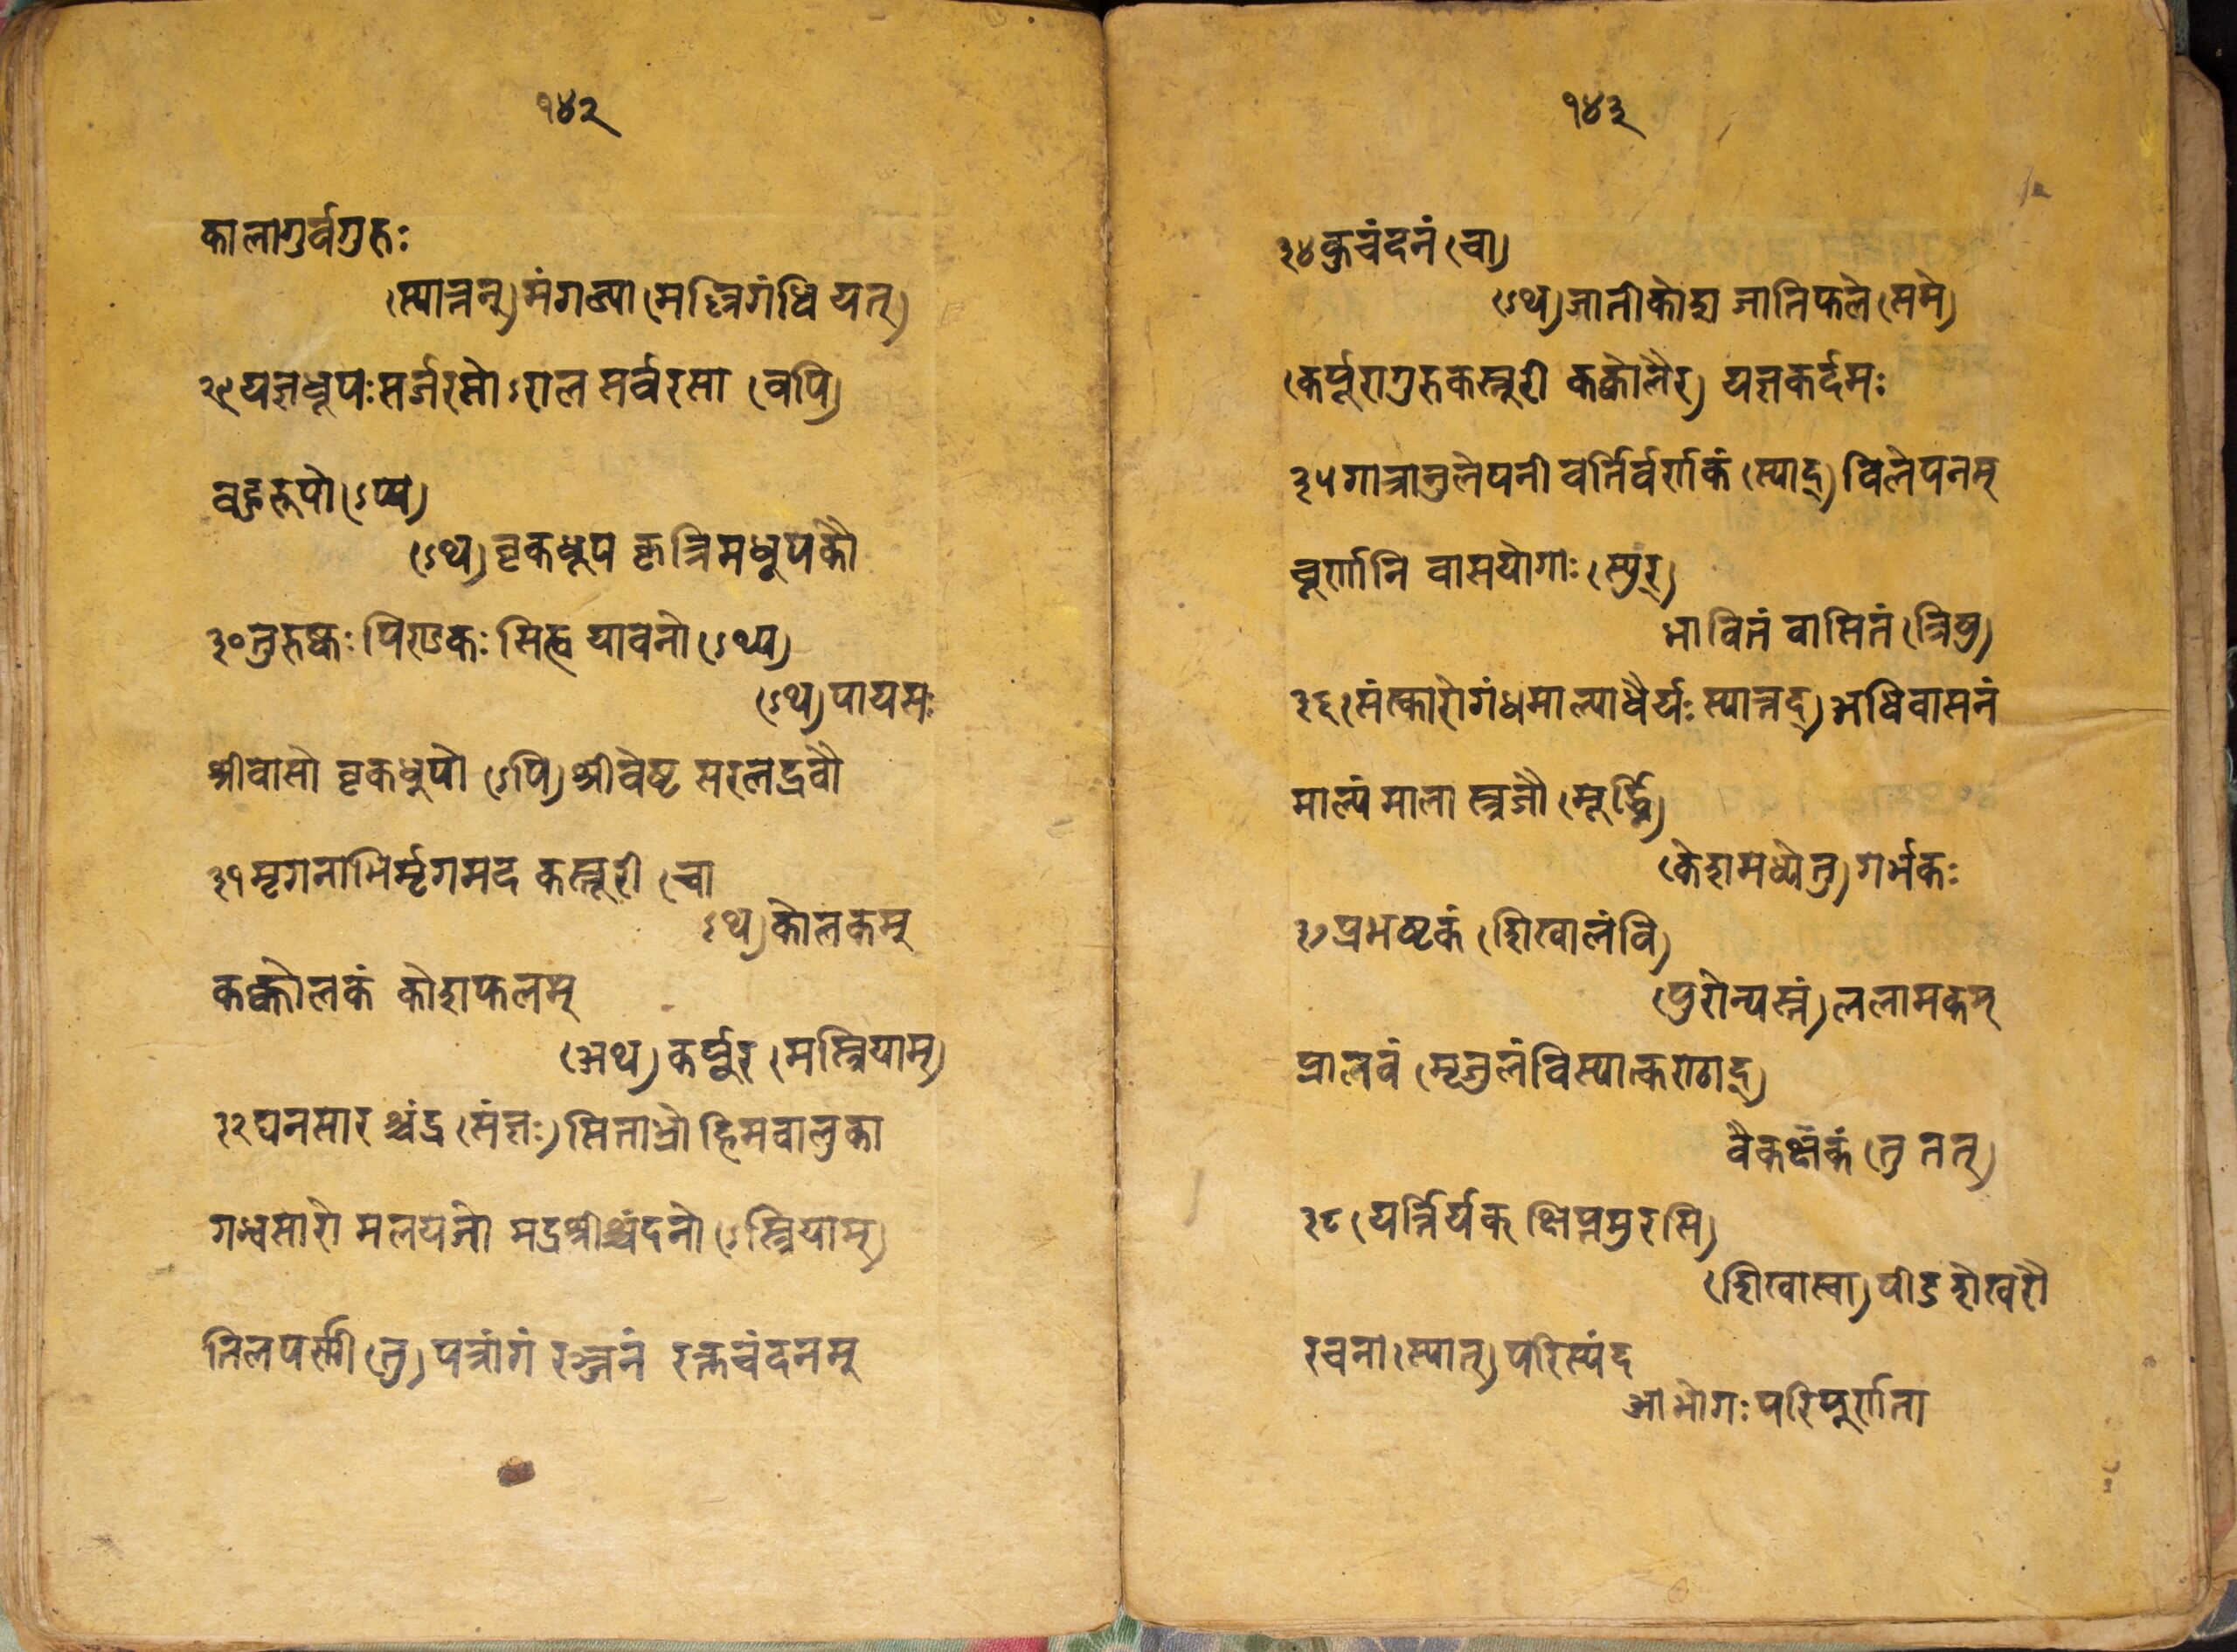 १४२
कालागुर्वगुरुः
(स्यात्तत्) मंगल्या (मल्लिगंधि यत्)
२९ यज्ञधूपः सर्जरसो ऽराल सर्वरसा (वपि)
बहुरूपो (ऽप्य)
(ऽथ) वृकधूप कृत्रिमधूपकौ
३० तुरुष्कः पिण्डकः सिह्ल यावनो (ऽप्य)
(ऽथ) पायसः
श्रीवासो वृकधूपो (ऽपि) श्रीवेष्ट सरलद्रवौ
३१ मृगनाभिर्मृगमद कस्तूरी (चा
ऽथ) कोलकम्
कक्कोलकं कोशफलम्
(अथ) कर्पूर (मस्त्रियाम्)
३२ घनसार श्चंद्र (संज्ञः) सिताभ्रो हिमवालुका
गन्धसारो मलयजो भद्रश्रीश्चंदनो (ऽस्त्रियाम्)
तिलपर्णी (तु) पत्रांगं रञ्जनं रक्तचंदनम्
१४३
३४ कुचंदनं (चा)
(ऽथ) जातीकोश जातिफले (समे)
(कर्पूरागुरुकस्तूरी कक्कोलैर) यज्ञकर्दमः
३५ गात्रानुलेपनी वर्तिर्वर्णकं (स्याद्) विलेपनम्
चूर्णानि वासयोगाः (स्युर्)
भावितं वासितं (त्रिषु)
३६ (संस्कारोगंधमाल्याधैर्यः स्यात्तद्) अधिवासनं
माल्यं माला स्त्रजौ (मूर्द्ध्नि)
(केशमध्येतु) गर्भकः
३७ प्रभष्टकं (शिखालंवि)
(पुरोन्यस्तं) ललामकम्
प्रालवं (मृजुलंविस्यात्कण्ठाद्)
वैकक्षकं (तु तत्)
३८ (यत्तिर्यक् क्षिप्तमुरसि)
(शिखास्वा) पीड शेखरौ
रचना (स्यात्) परिस्पंद
आभोगः परिपूर्णता